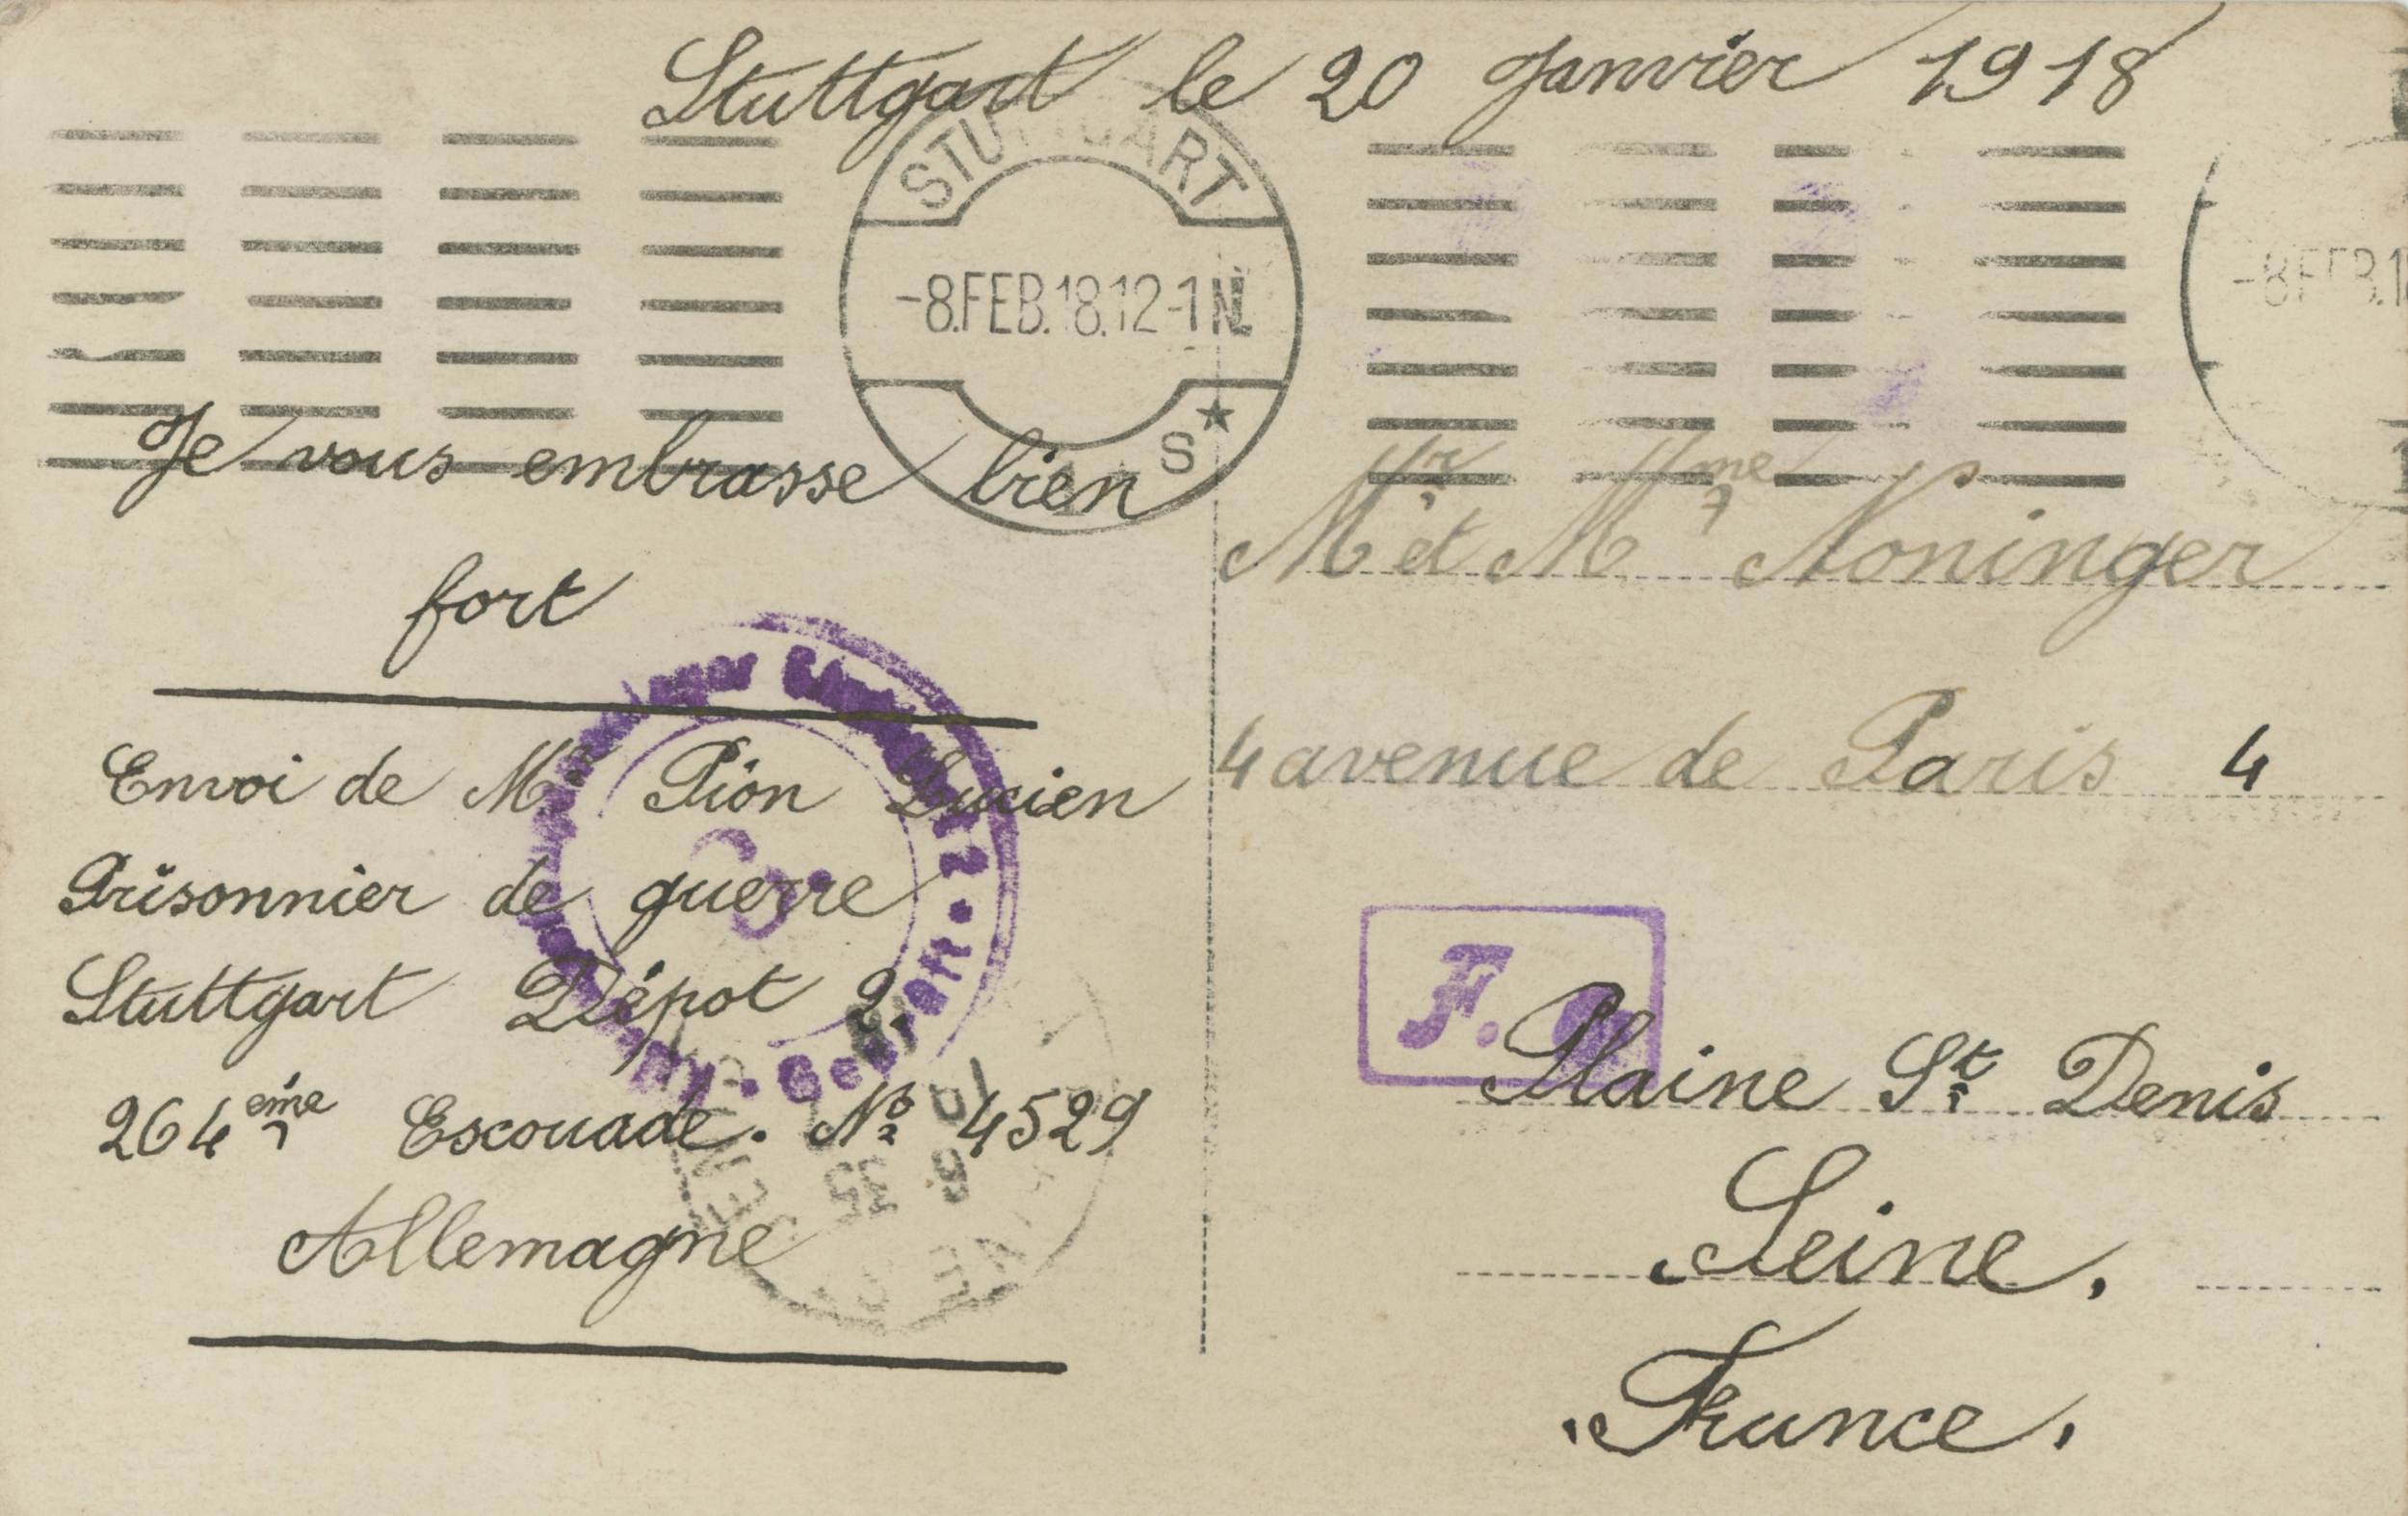 Stuttgart le 20 Janvier 1918
STUTTGART
-8.FEB.18.12-1N.
S
-8 FEB.1
Je vous embrasse bien
fort
Envoi de Mr Pion Lucien
Prisonnier de guerre
Stuttgart Dépot 2.
264eme Escouade. No 4529
Allemagne
Geprüft
Mr et Mme Noninger
4 avenue de Paris 4
F.
Plaine St Denis
Seine.
France.